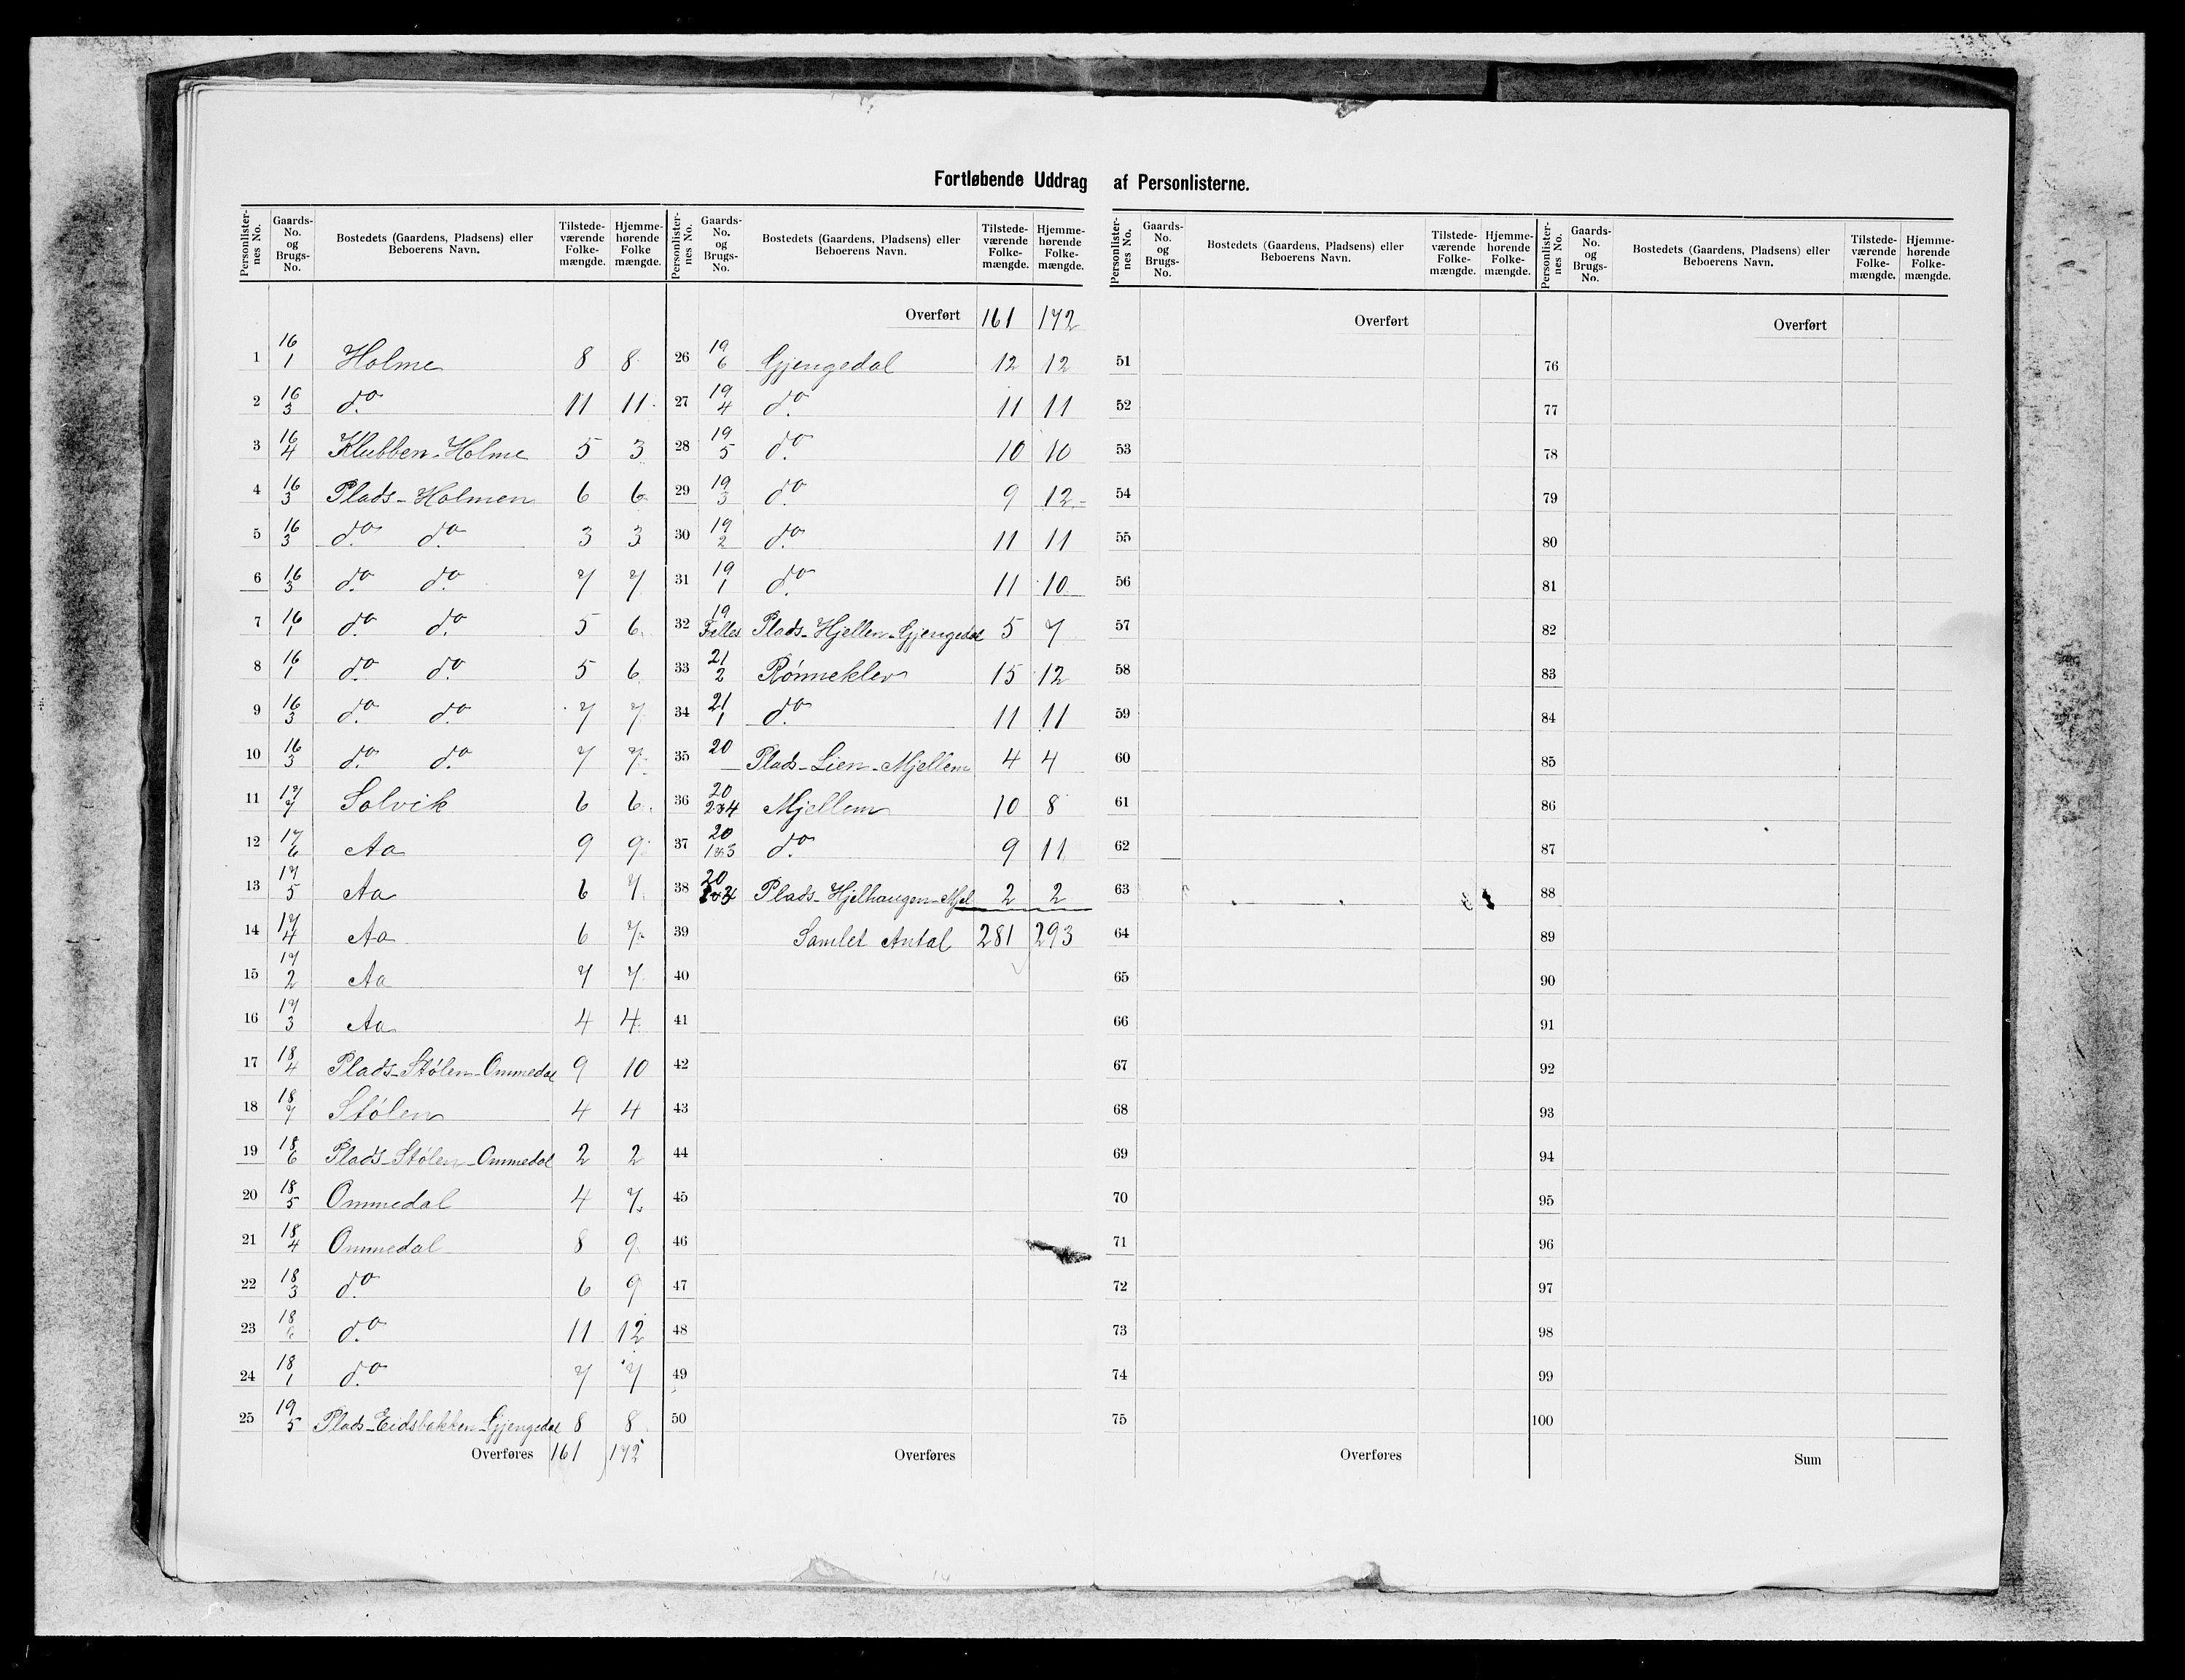 Fortløbende Uddrag af Personlisterne.
Personlisternes No. | Gaards-No. og Brugs-No. | Bostedets (Gaardens, Pladsens) eller Beboerens Navn. | Tilstedeværende Folkemængde. | Hjemmehørende Folkemængde.
1 16/1 Holme 8 8
2 16/3 do 11 11
3 16/4 Klubben-Holme 5 3
4 16/3 Plads-Holmen 6 6
5 16/3 do do 3 3
6 16/3 do do 7 7
7 16/1 do do 5 6
8 16/1 do do 5 6
9 16/3 do do 7 7
10 16/3 do do 7 7
11 17/7 Solvik 6 6
12 17/6 Aa 9 9
13 17/5 Aa 6 7
14 17/4 Aa 6 7
15 17/2 Aa 7 7
16 17/3 Aa 4 4
17 18/4 Plads-Stølen-Ommedal 9 10
18 18/7 Stølen 4 4
19 18/6 Plads-Stølen-Ommedal 2 2
20 18/5 Ommedal 4 7
21 18/4 Ommedal 8 9
22 18/3 do 6 9
23 18 do 11 12
24 18/1 do 7 7
25 19/5 Plads-Eidsbakken-Gjengedal 8 8
Overføres 161 172
Personlisternes No. | Gaards-No. og Brugs-No. | Bostedets (Gaardens, Pladsens) eller Beboerens Navn. | Tilstedeværende Folkemængde. | Hjemmehørende Folkemængde.
Overført 161 172
26 19/6 Gjengedal 12 12
27 19/4 do 11 11
28 19/5 do 10 10
29 19/3 do 9 12
30 19/2 do 11 11
31 19/1 do 11 10
32 19/Felles Plads-Hjellen-Gjengedal 5 7
33 21/2 Rønneklev 15 12
34 21/1 do 11 11
35 20 Plads-Lien-Mjellem 4 4
36 20/2&4 Mjellem 10 8
37 20/1&3 do 9 11
38 20 Plads-Hjelhaugen-Mjel 2 2
39 Samlet Antal 281 293
40
41
42
43
44
45
46
47
48
49
50
Overføres
Personlisternes No. | Gaards-No. og Brugs-No. | Bostedets (Gaardens, Pladsens) eller Beboerens Navn. | Tilstedeværende Folkemængde. | Hjemmehørende Folkemængde.
Overført
51
52
53
54
55
56
57
58
59
60
61
62
63
64
65
66
67
68
69
70
71
72
73
74
75
Overføres
Personlisternes No. | Gaards-No. og Brugs-No. | Bostedets (Gaardens, Pladsens) eller Beboerens Navn. | Tilstedeværende Folkemængde. | Hjemmehørende Folkemængde.
Overført
76
77
78
79
80
81
82
83
84
85
86
87
88
89
90
91
92
93
94
95
96
97
98
99
100
Sum